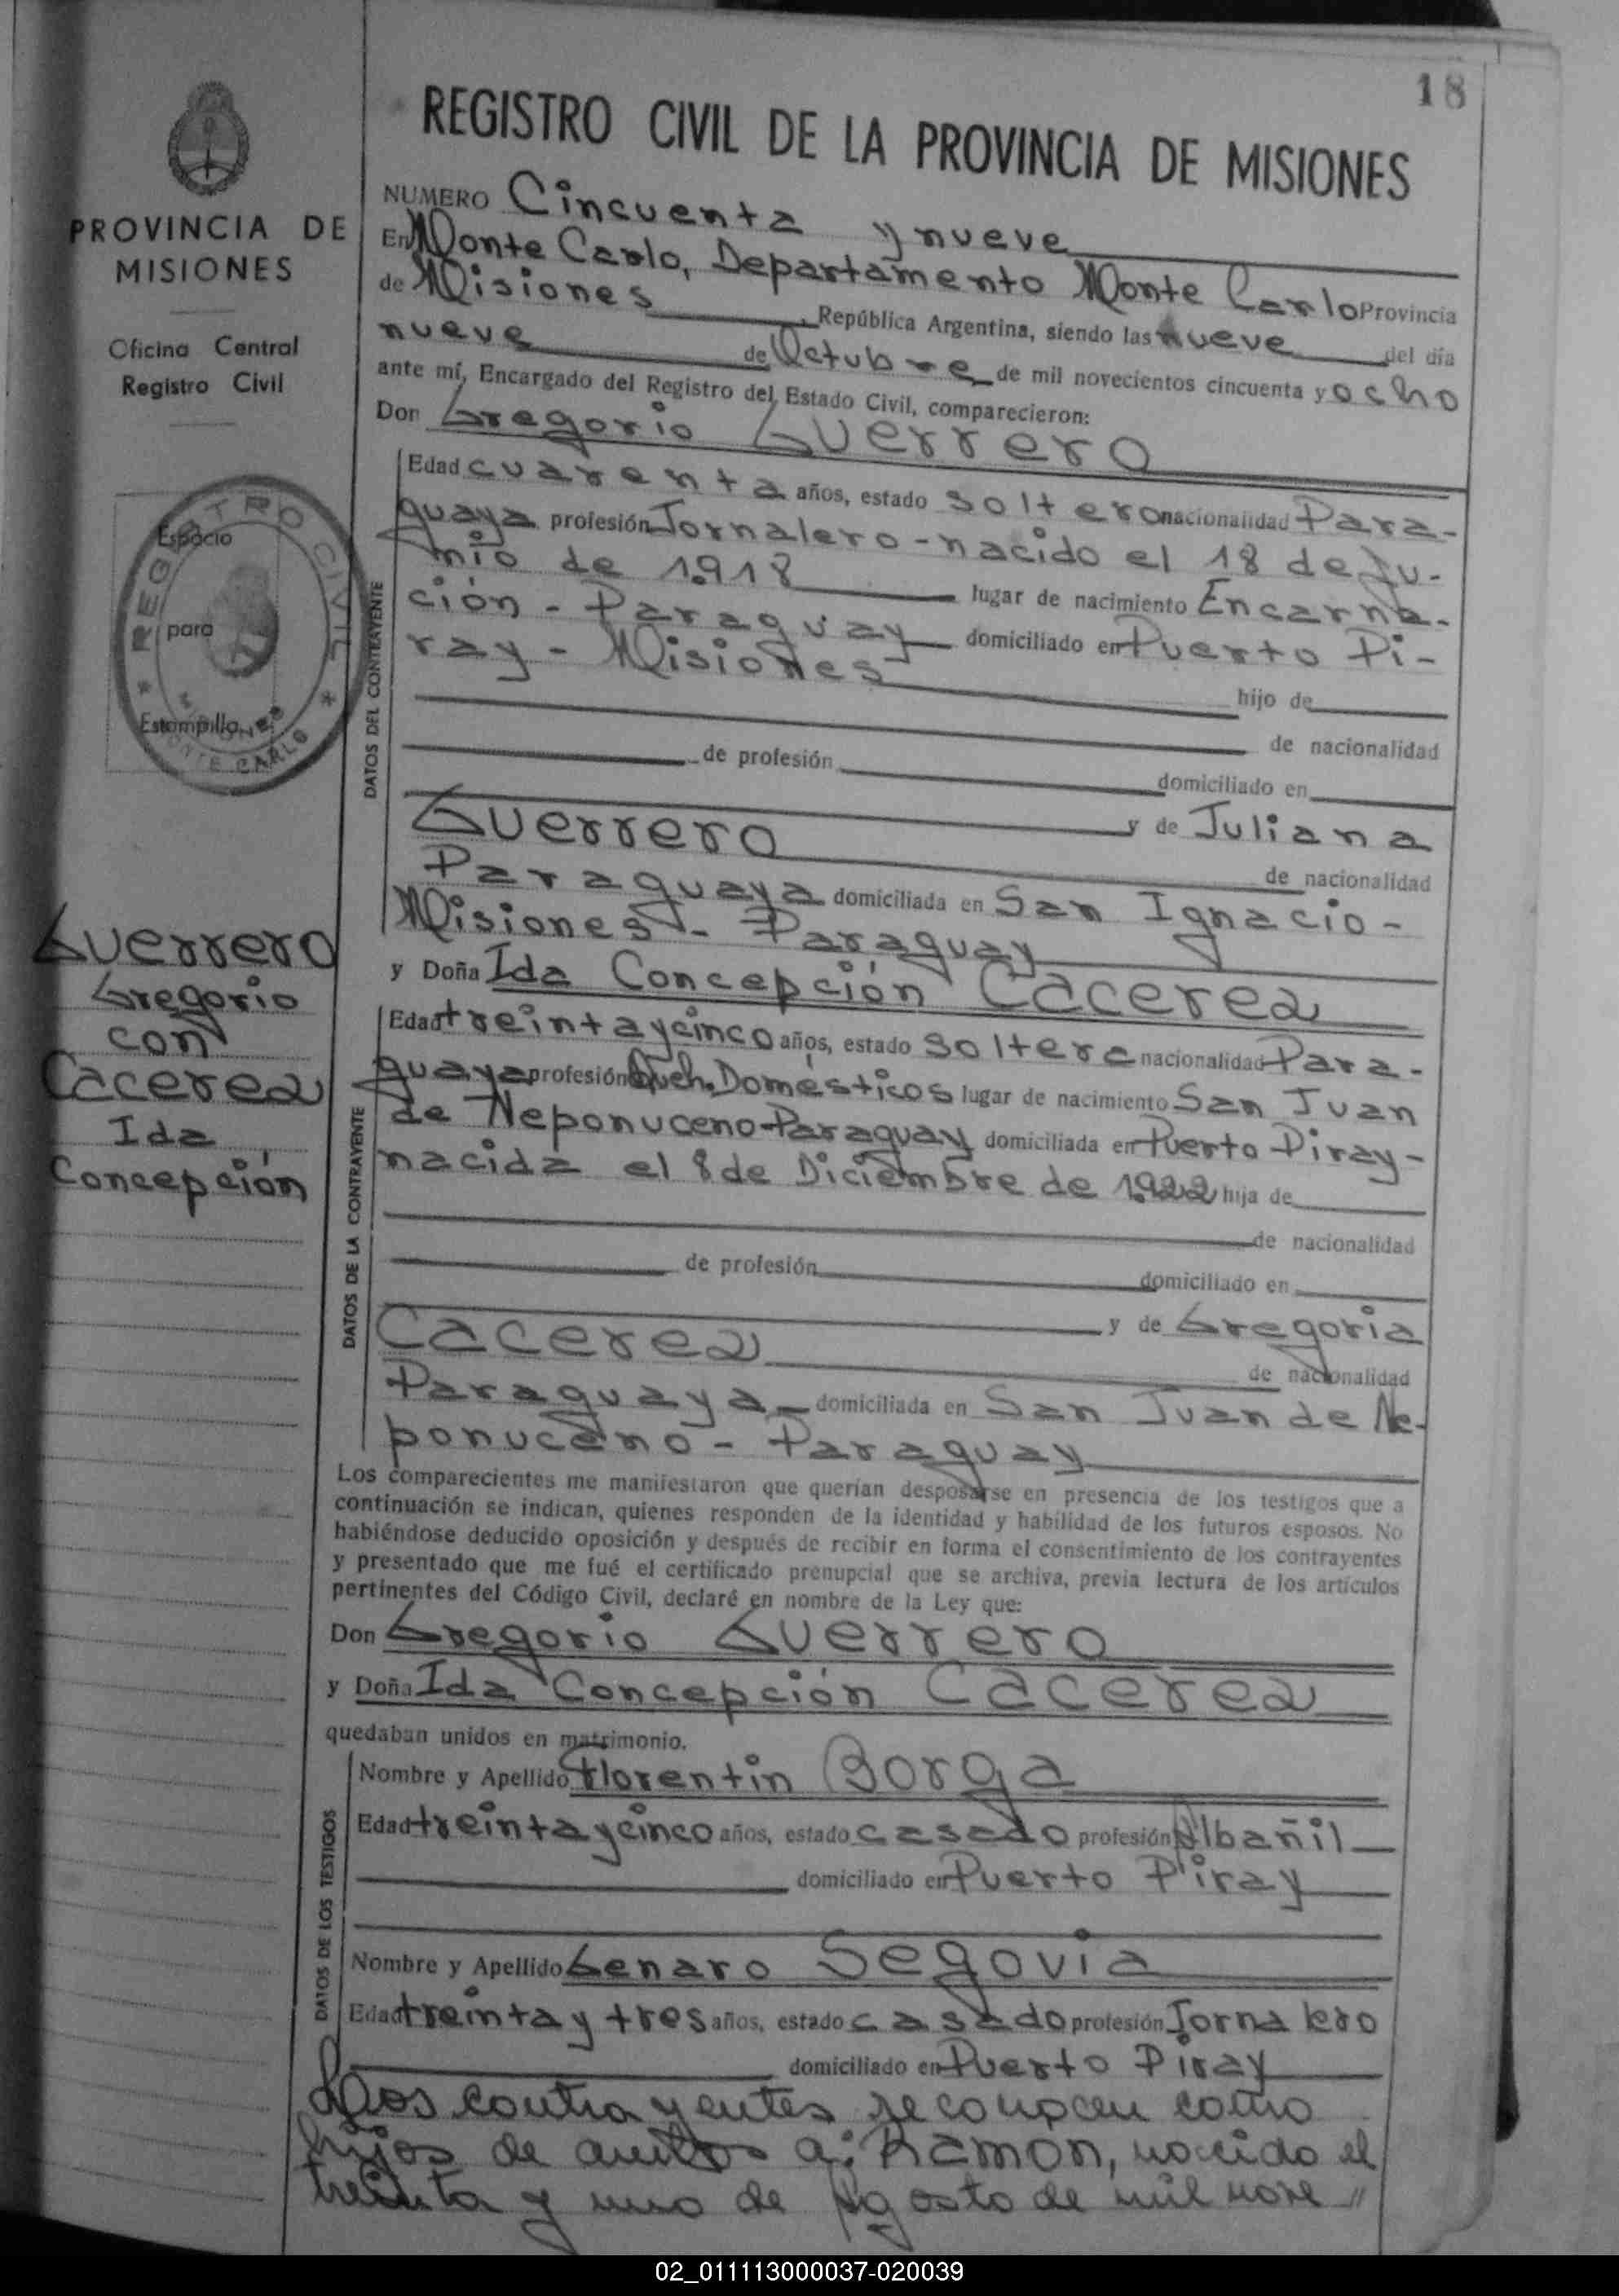 18
REGISTRO CIVIL DE LA PROVINCIA DE MISIONES
PROVINCIA DE
MISIONES
Oficina Central
Registro Civil
REGISTRO CIVIL
Espacio
para
Estampilla
MISIONES
MONTE CARLO
Guerrero
Gregorio
con
Cacerez
Ida
Concepción
NUMERO Cincuenta y nueve
En Monte Carlo, Departamento Monte Carlo Provincia
de Misiones, República Argentina, siendo las nueve del día
nueve de Octubre de mil novecientos cincuenta y ocho
ante mí, Encargado del Registro del Estado Civil, comparecieron:
Don Gregorio Guerrero
DATOS DEL CONTRAYENTE
Edad cuarenta años, estado soltero nacionalidad Para-
guaya profesión Jornalero - nacido el 18 de Ju-
nio de 1.918 lugar de nacimiento Encarna-
ción - Paraguay domiciliado en Puerto Pi-
ray - Misiones
hijo de
de nacionalidad
de profesión domiciliado en
y de Juliana
Guerrero de nacionalidad
Paraguaya domiciliada en San Ignacio -
Misiones - Paraguay
y Doña Ida Concepción Cacerez
DATOS DE LA CONTRAYENTE
Edad treinta y cinco años, estado soltera nacionalidad Para-
guaya profesión Queh. Domésticos lugar de nacimiento San Juan
de Neponuceno - Paraguay domiciliada en Puerto Piray -
nacida el 8 de Diciembre de 1.922 hija de
de nacionalidad
de profesión domiciliado en
y de Gregoria
Cacerez de nacionalidad
Paraguaya domiciliada en San Juan de Ne-
ponuceno - Paraguay
Los comparecientes me manifestaron que querían desposarse en presencia de los testigos que a
continuación se indican, quienes responden de la identidad y habilidad de los futuros esposos. No
habiéndose deducido oposición y después de recibir en forma el consentimiento de los contrayentes
y presentado que me fué el certificado prenupcial que se archiva, previa lectura de los artículos
pertinentes del Código Civil, declaré en nombre de la Ley que:
Don Gregorio Guerrero
y Doña Ida Concepción Cacerez
quedaban unidos en matrimonio.
DATOS DE LOS TESTIGOS
Nombre y Apellido Florentin Borga
Edad treinta y cinco años, estado casado profesión Albañil
domiciliado en Puerto Piray
Nombre y Apellido Genaro Segovia
Edad treinta y tres años, estado casado profesión Jornalero
domiciliado en Puerto Piray
Los contrayentes reconocen como
hijos de ambos a: Ramón, nacido el
treinta y uno de Agosto de mil nove "
02_011113000037-020039